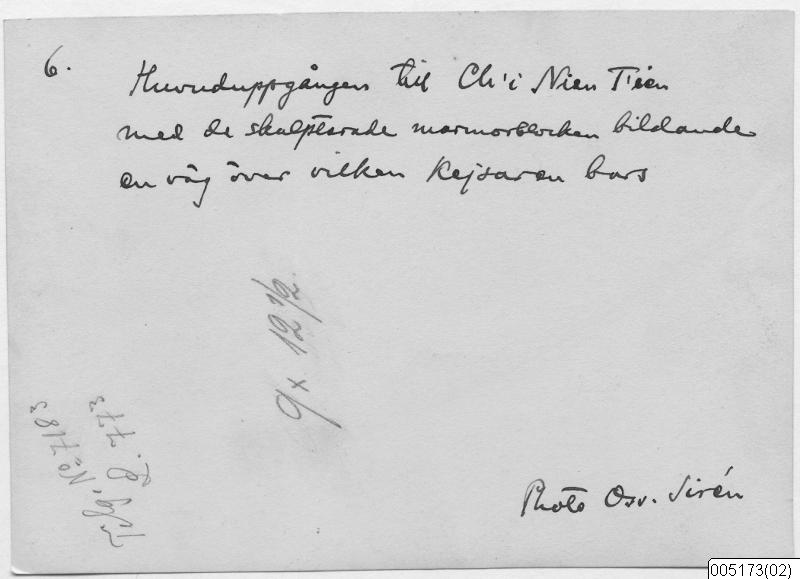 6.
Huvuduppgången till Ch'i Nien Tien
med de skulpterade marmorblocken bildande
en väg över vilken Kejsaren bars
9 x 12 1/2
No 7183
P. 773
Photo Osv. Sirén
005173(02)